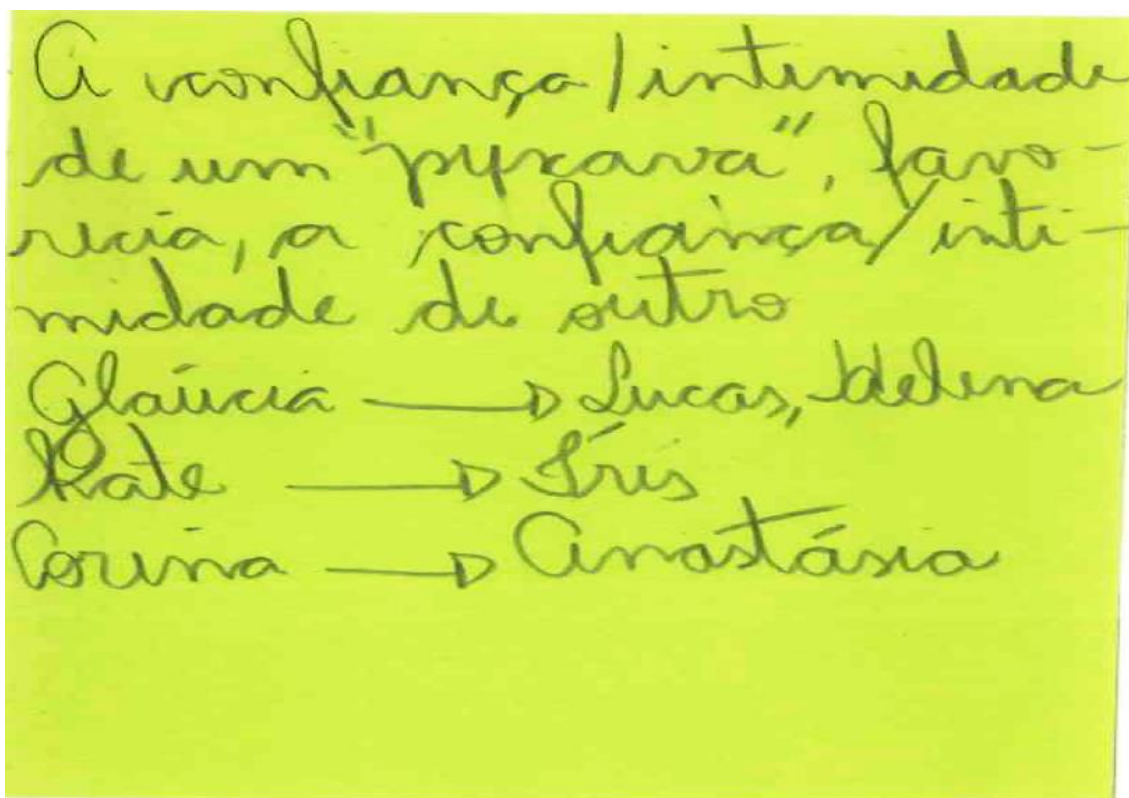 A confiança/intimidade
de um "puxava", favo-
recia, a confiança/inti-
midade de outro
Glaúcia → Lucas, Helena
Kate → Íris
Corina → Anastásia